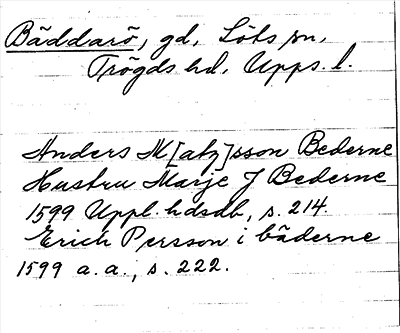 Bäddarö, gd, Löts sn,
Trögds hd, Upps. l.
Anders M[atz]sson Bederne
Hustru Marje J Bederne
1599 Uppl. hdsdb, s. 214.
Erich Persson i bäderne
1599 a. a., s. 222.